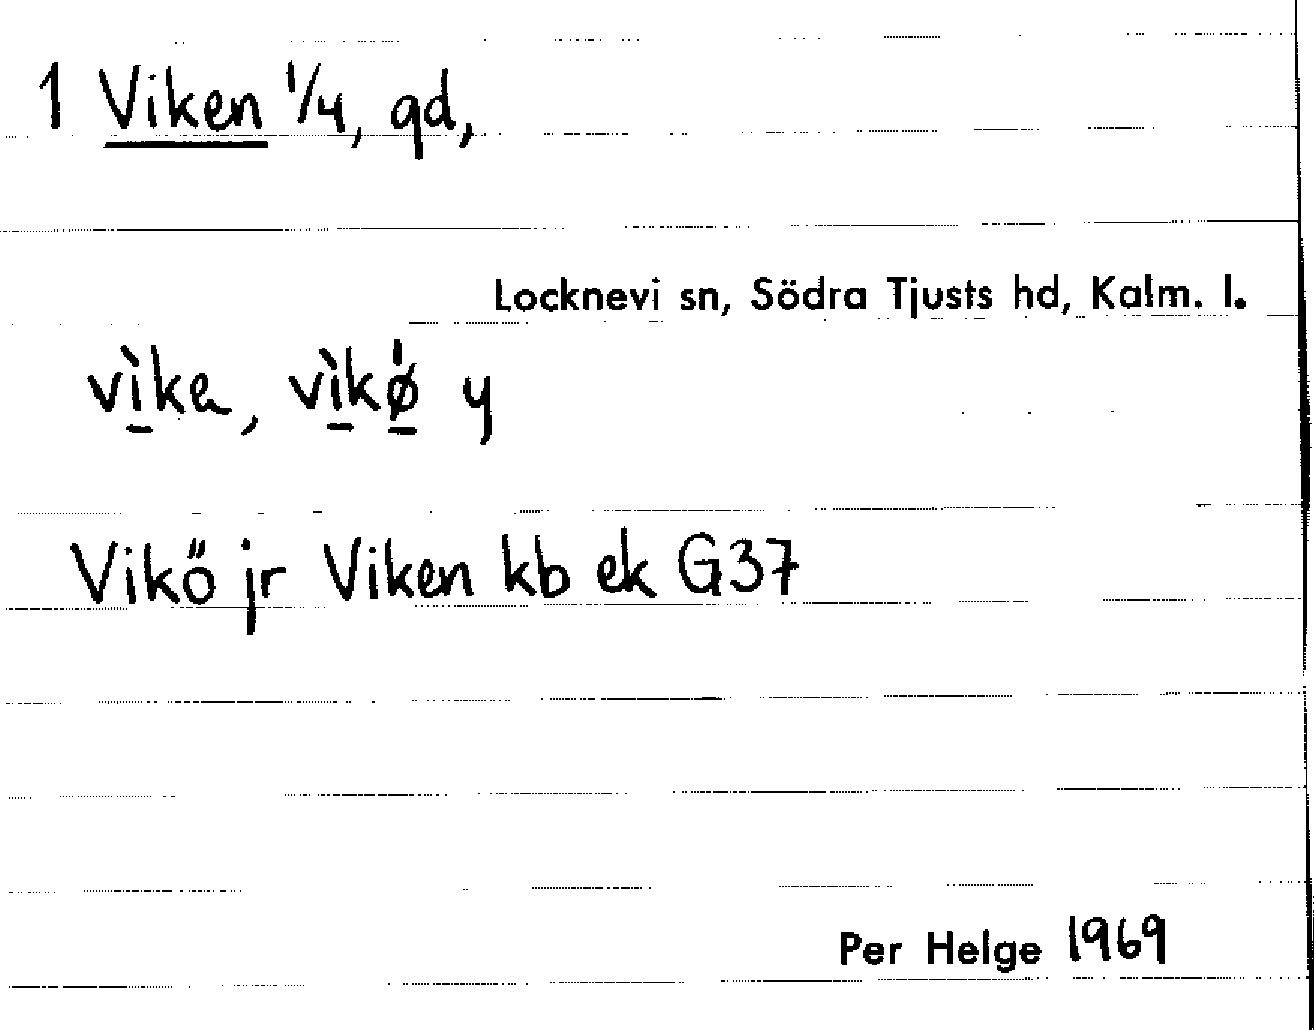 1 Viken 1/4, gd,
Locknevi sn, Södra Tjusts hd, Kalm. l.
vìka, vìkø̍ y
Vikö jr Viken kb ek G37
Per Helge 1969